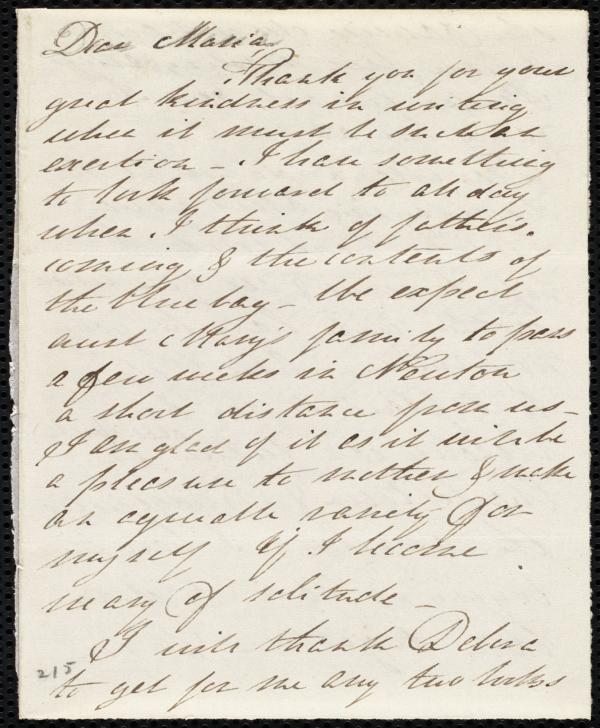 Dear Maria,
Thank you for your
great kindness in writing
when it must be such an
exertion - I have something
to look forward to all day
when I think of father's
coming & the contents of
the blue bag - We expect
aunt Mary's family to pass
a few weeks in Newton
a short distance from us -
I am glad of it as it will be
a pleasure to mother & make
an agreeable variety for
myself if I become
weary of solitude -
I will thank Debra
215
to get for me any two books